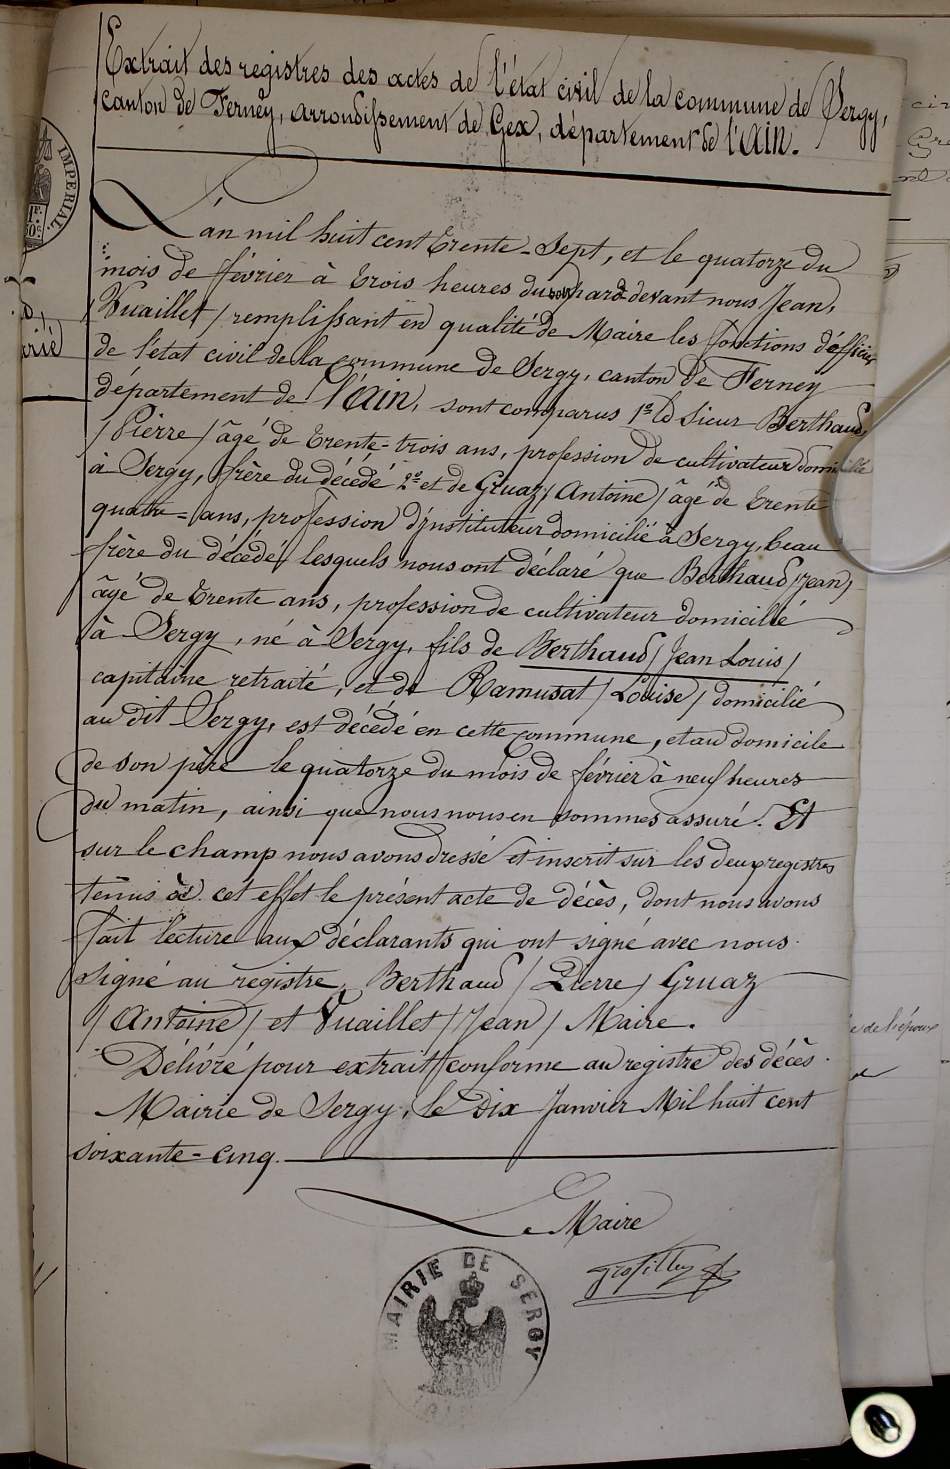 Extrait des registres des actes de l'état civil de la commune de Sergy,
canton de Ferney, arrondissement de Gex, département de l'Ain.
L'an mil huit cent trente-sept, et le quatorze du
mois de février à trois heures du soir pardevant nous Jean,
Vuaillet / remplissant en qualité de Maire les fonctions d'officier
de l'état civil de la commune de Sergy, canton de Ferney
département de l'Ain, sont comparus 1º le Sieur Berthaud,
/ Pierre / âgé de trente-trois ans, profession de cultivateur domicilié
à Sergy, frère du décédé 2º et de Gruaz / Antoine / âgé de trente
quatre=ans, profession d'instituteur domicilié à Sergy, beau
frère du décédé / lesquels nous ont déclaré que Berthaud / Jean /
âgé de trente ans, profession de cultivateur domicilié
à Sergy, né à Sergy, fils de Berthaud / Jean Louis /
capitaine retraité, et de Ramusat / Louise / domicilié
au dit Sergy, est décédé en cette commune, et au domicile
de son père le quatorze du mois de février à neuf heures
du matin, ainsi que nous nous en sommes assuré. Et
sur le champ nous avons dressé et inscrit sur les deux registres
tenus à cet effet le présent acte de décès, dont nous avons
fait lecture aux déclarants qui ont signé avec nous.
Signé au registre, Berthaud / Pierre / Gruaz
/ Antoine / et Vuaillet / Jean / Maire.
Délivré pour extrait conforme au registre des décès.
Mairie de Sergy, le Dix Janvier Mil huit cent
soixante=cinq.
Le Maire
MAIRIE DE SERGY
IMPERIAL
de l'époux